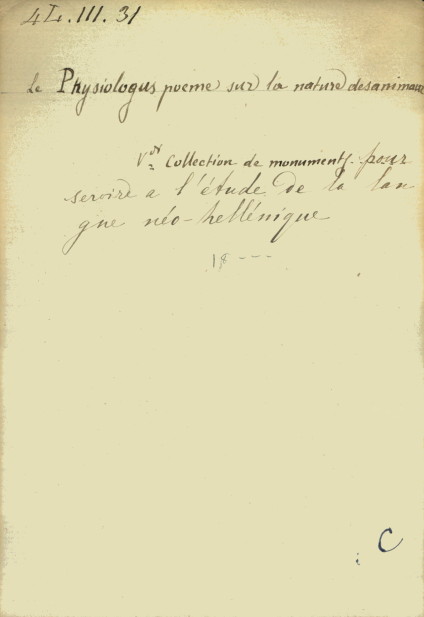 4L.III.31
Le Physiologus poeme sur la nature des animaux
Vor Collection de monuments pour
servire a l'étude de la lan
gue néo-hellénique
18---
C